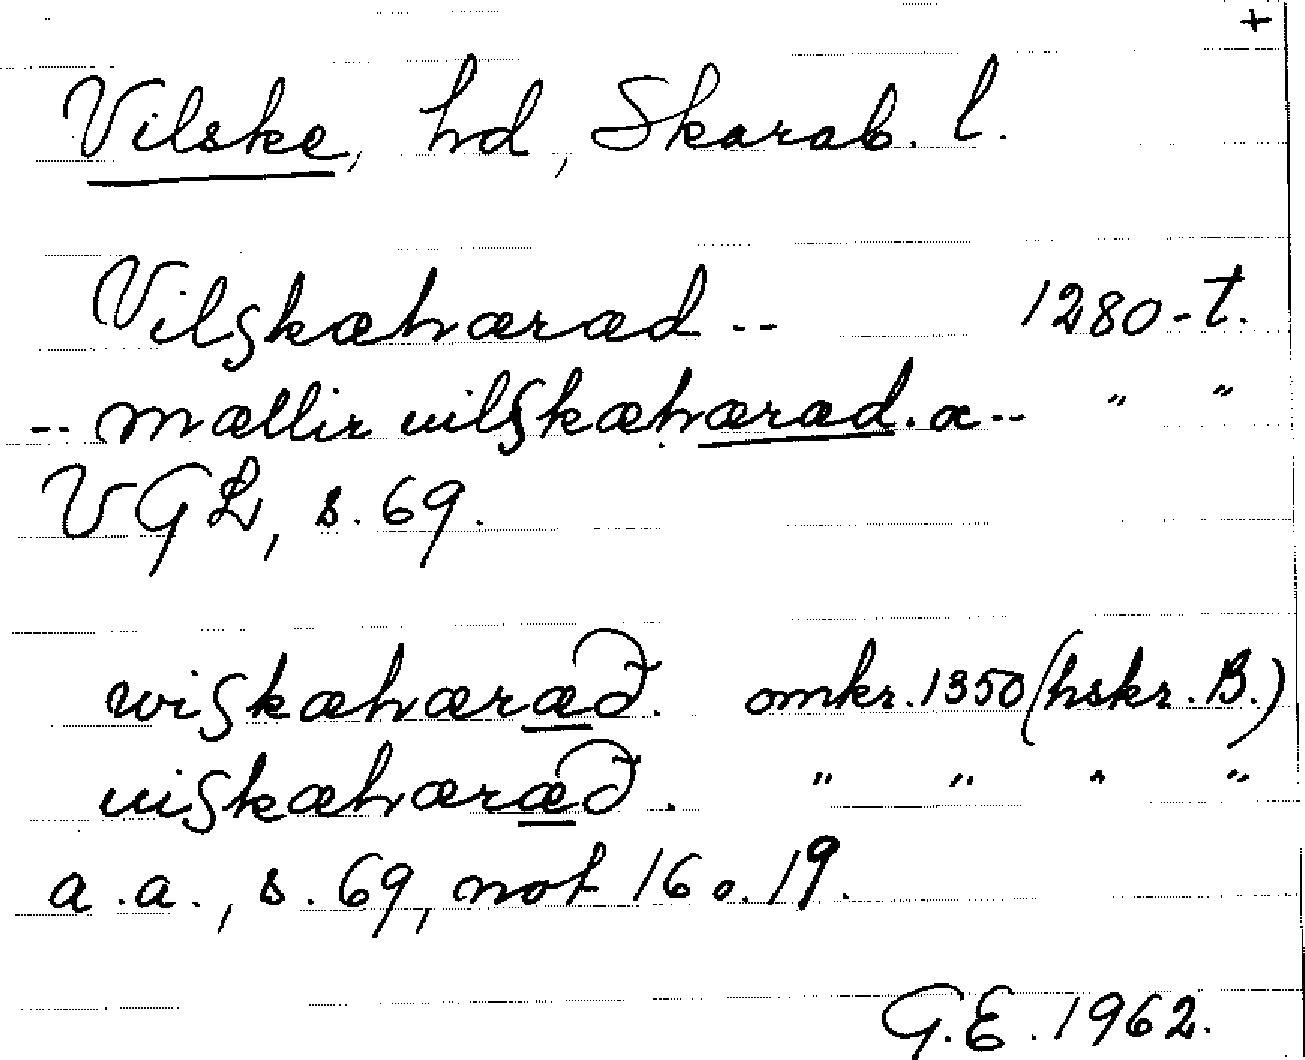 +
Vilske, hd, Skarab. l.
Vilskæhæræd -- 1280-t.
-- mællir uilskæhæræd. æ -- " "
VGL, s. 69.
wiskæhæræð. omkr. 1350 (hskr. B.)
uiskæhæræð. " " " "
a.a., s. 69, not 16 o. 19.
G.E. 1962.